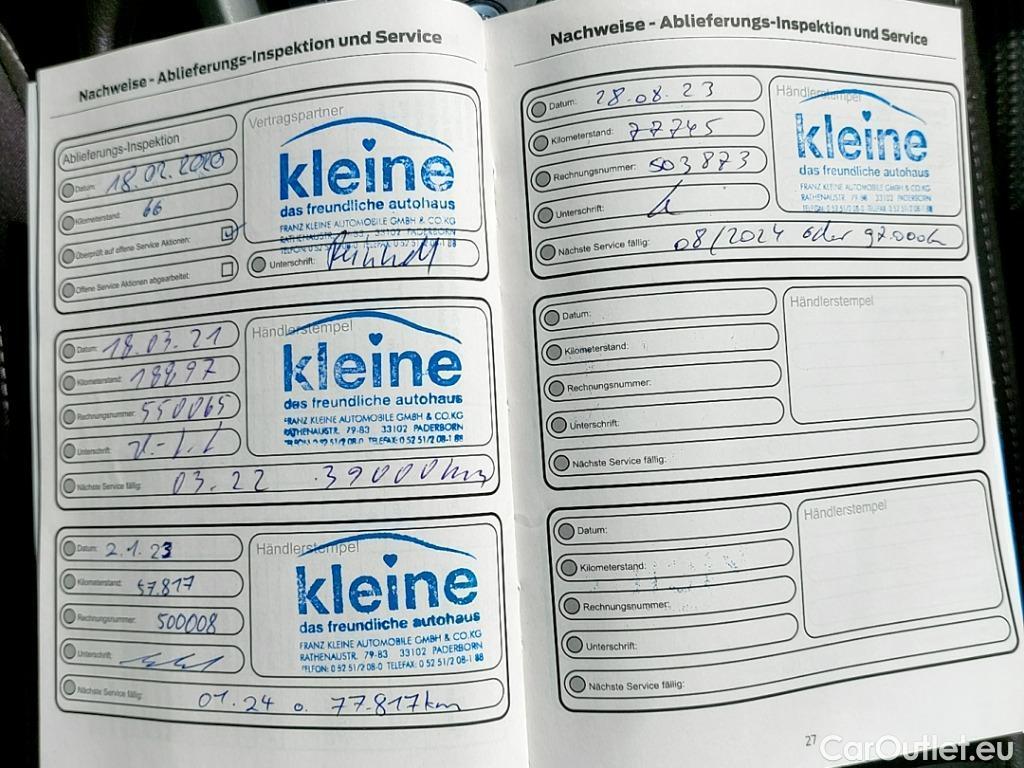 Nachweise - Ablieferungs-Inspektion und Service
Ablieferungs-Inspektion
Datum: 18.02.2020
Kilometerstand: 66
Überprüft auf offene Service Aktionen:
Offene Service Aktionen abgearbeitet:
Vertragspartner
kleine
das freundliche autohaus
FRANZ KLEINE AUTOMOBILE GMBH & CO.KG
RATHENAUSTR. 79-83 33102 PADERBORN
TELFON: 0 52 51/2 08-0 TELEFAX: 0 52 51/2 08-1 88
Unterschrift:
Datum: 18.03.21
Kilometerstand: 18897
Rechnungsnummer: 550065
Unterschrift:
Nächste Service fällig: 03.22 39000km
Händlerstempel
kleine
das freundliche autohaus
FRANZ KLEINE AUTOMOBILE GMBH & CO.KG
RATHENAUSTR. 79-83 33102 PADERBORN
TELFON: 0 52 51/2 08-0 TELEFAX: 0 52 51/2 08-1 88
Datum: 2.1.23
Kilometerstand: 57.817
Rechnungsnummer: 500008
Unterschrift:
Nächste Service fällig: 01.24 o. 77.817km
Händlerstempel
kleine
das freundliche autohaus
FRANZ KLEINE AUTOMOBILE GMBH & CO.KG
RATHENAUSTR. 79-83 33102 PADERBORN
TELFON: 0 52 51/2 08-0 TELEFAX: 0 52 51/2 08-1 88
Nachweise - Ablieferungs-Inspektion und Service
Datum: 28.08.23
Kilometerstand: 77745
Rechnungsnummer: 503873
Unterschrift:
Nächste Service fällig: 08/2024 oder 97.000km
Händlerstempel
kleine
das freundliche autohaus
FRANZ KLEINE AUTOMOBILE GMBH & CO.KG
RATHENAUSTR. 79-83 33102 PADERBORN
TELFON: 0 52 51/2 08-0 TELEFAX: 0 52 51/2 08-1 88
Datum:
Kilometerstand:
Rechnungsnummer:
Unterschrift:
Nächste Service fällig:
Händlerstempel
Datum:
Kilometerstand:
Rechnungsnummer:
Unterschrift:
Nächste Service fällig:
Händlerstempel
27
CarOutlet.eu